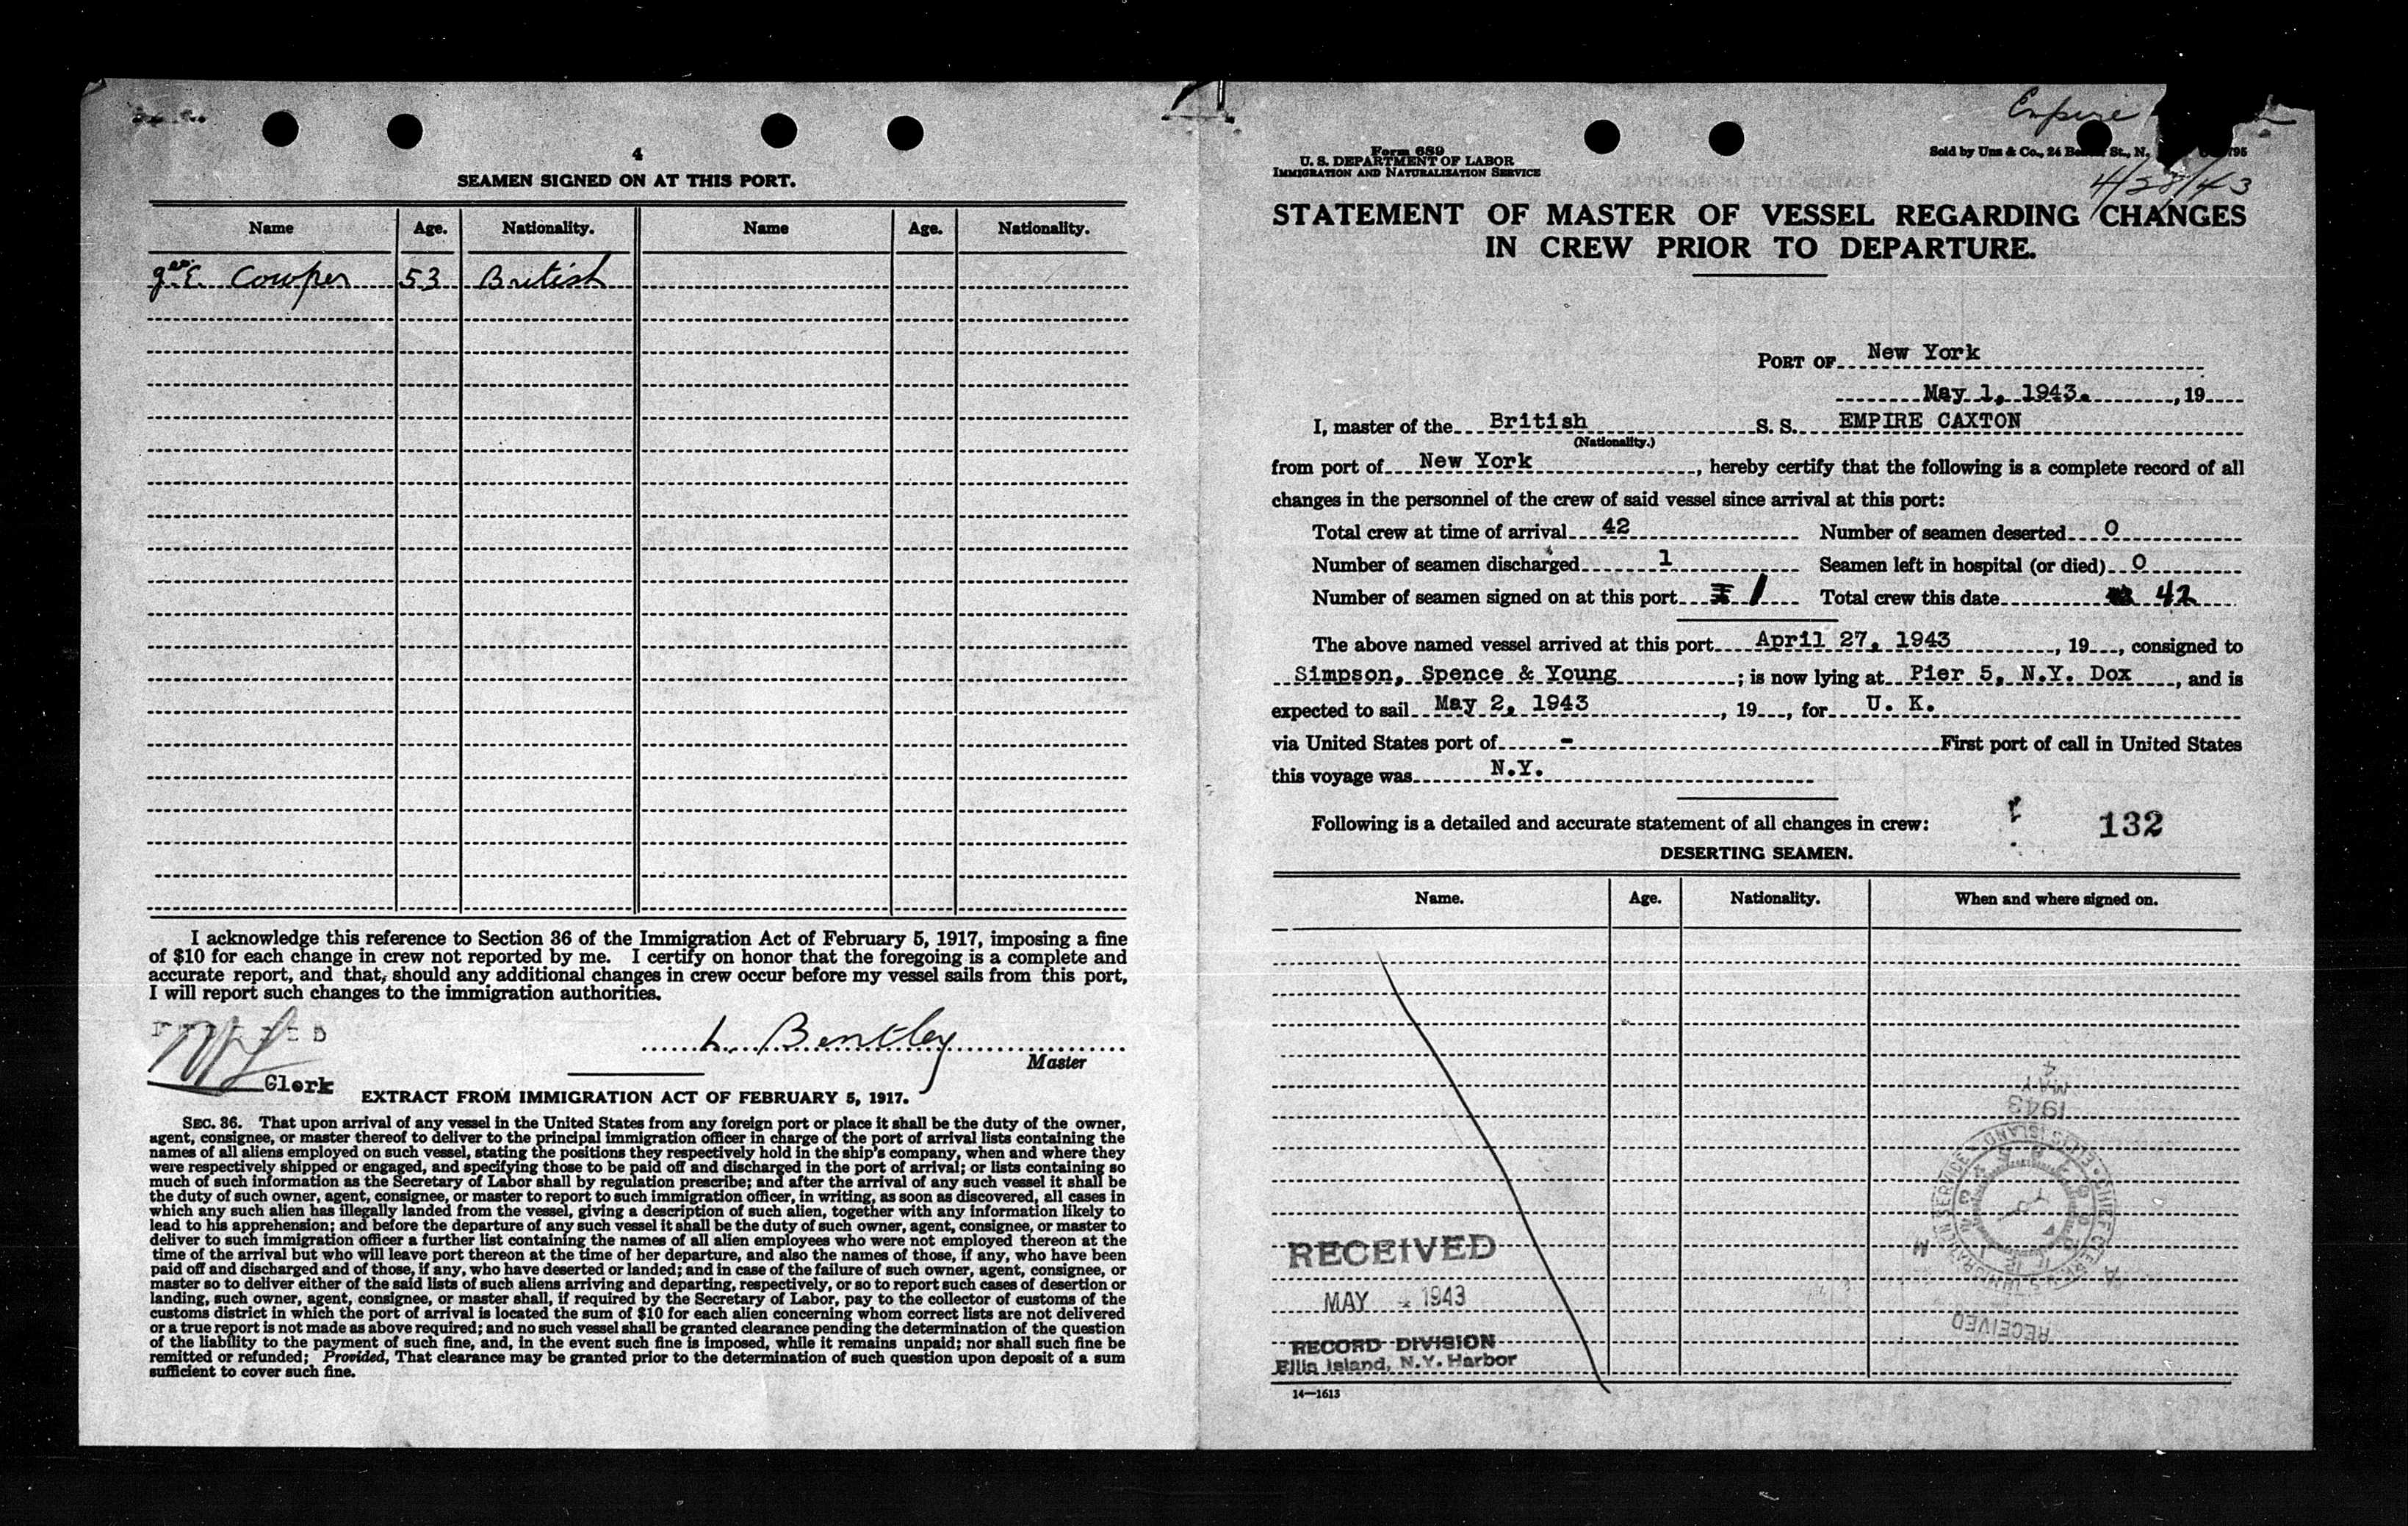 4
SEAMEN SIGNED ON AT THIS PORT.
Name Age. Nationality. Name Age. Nationality.
Cowper 53 British
I acknowledge this reference to Section 36 of the Immigration Act of February 5, 1917, imposing a fine
of $10 for each change in crew not reported by me. I certify on honor that the foregoing is a complete and
accurate report, and that, should any additional changes in crew occur before my vessel sails from this port,
I will report such changes to the immigration authorities.
L. Bentley
Master
Clerk
EXTRACT FROM IMMIGRATION ACT OF FEBRUARY 5, 1917.
SEC. 36. That upon arrival of any vessel in the United States from any foreign port or place it shall be the duty of the owner,
agent, consignee, or master thereof to deliver to the principal immigration officer in charge of the port of arrival lists containing the
names of all aliens employed on such vessel, stating the positions they respectively hold in the ship's company, when and where they
were respectively shipped or engaged, and specifying those to be paid off and discharged in the port of arrival; or lists containing so
much of such information as the Secretary of Labor shall by regulation prescribe; and after the arrival of any such vessel it shall be
the duty of such owner, agent, consignee, or master to report to such immigration officer, in writing, as soon as discovered, all cases in
which any such alien has illegally landed from the vessel, giving a description of such alien, together with any information likely to
lead to his apprehension; and before the departure of any such vessel it shall be the duty of such owner, agent, consignee, or master to
deliver to such immigration officer a further list containing the names of all alien employees who were not employed thereon at the
time of the arrival but who will leave port thereon at the time of her departure, and also the names of those, if any, who have been
paid off and discharged and of those, if any, who have deserted or landed; and in case of the failure of such owner, agent, consignee, or
master so to deliver either of the said lists of such aliens arriving and departing, respectively, or so to report such cases of desertion or
landing, such owner, agent, consignee, or master shall, if required by the Secretary of Labor, pay to the collector of customs of the
customs district in which the port of arrival is located the sum of $10 for each alien concerning whom correct lists are not delivered
or a true report is not made as above required; and no such vessel shall be granted clearance pending the determination of the question
of the liability to the payment of such fine, and, in the event such fine is imposed, while it remains unpaid; nor shall such fine be
remitted or refunded; Provided, That clearance may be granted prior to the determination of such question upon deposit of a sum
sufficient to cover such fine.
Empire
Form 689
U. S. DEPARTMENT OF LABOR
IMMIGRATION AND NATURALIZATION SERVICE
Sold by Unz & Co., 24 St., N.
4/28/43
STATEMENT OF MASTER OF VESSEL REGARDING CHANGES
IN CREW PRIOR TO DEPARTURE.
PORT OF New York
May 1, 1943. , 19
I, master of the British S. S. EMPIRE CAXTON
(Nationality.)
from port of New York , hereby certify that the following is a complete record of all
changes in the personnel of the crew of said vessel since arrival at this port:
Total crew at time of arrival 42 Number of seamen deserted 0
Number of seamen discharged 1 Seamen left in hospital (or died) 0
Number of seamen signed on at this port 1 Total crew this date 42
The above named vessel arrived at this port April 27, 1943 , 19 , consigned to
Simpson, Spence & Young ; is now lying at Pier 5, N.Y. Dox , and is
expected to sail May 2, 1943 , 19 , for U. K.
via United States port of - First port of call in United States
this voyage was N.Y.
Following is a detailed and accurate statement of all changes in crew:
132
DESERTING SEAMEN.
Name. Age. Nationality. When and where signed on.
1943
MAY
4
CHIEF CLERK U.S. IMMIGRATION SERVICE ELLIS ISLAND
RECEIVED
RECEIVED
MAY 4 1943
RECORD DIVISION
Ellis Island, N.Y. Harbor
14—1613